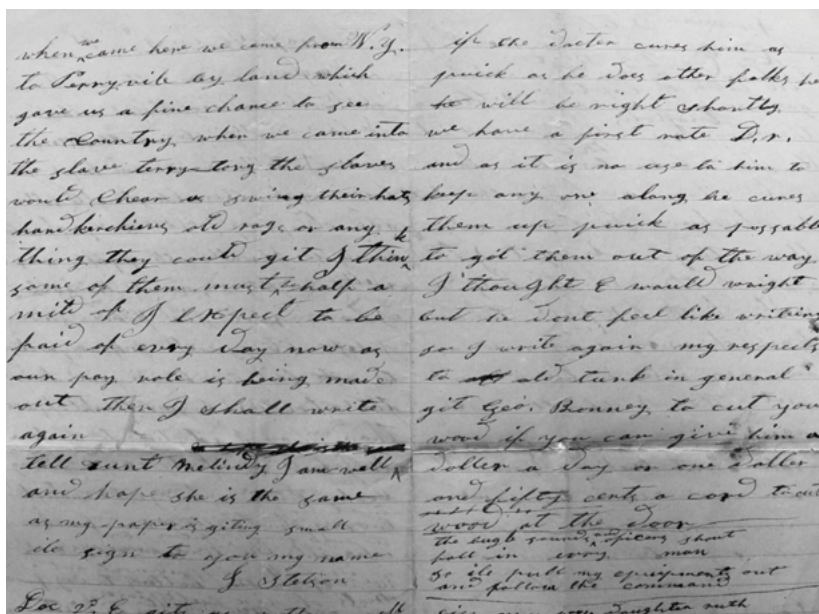 when we came here we came from N.Y.
to Perryvile by land which
gave us a fine chance to see
the Country, when we came into
the slave terry-tory the slaves
would Chear us swing their hats
handkerchievs old rags or any
thing they could git I think
some of them must half a
mile of I expect to be
paid of evry day now as
our pay role is being made
out then I shall write
again
tell aunt Melindy I am well
and hope she is the same
as my paper is giting small
ile sign to you my name
J Stetson
Dec 2
if the docter cures him as
quick as he does other folks he
will be right shortly
we have a first rate D.r.
and as it is no use to him to
keep any one along he cures
them up quick as possable
to git them out of the way
I thought E would wright
but he dont feel like writing
so I write again my respects
to old tunk in general
git Geo. Bonney to cut you
wood if you can give him a
doller a day or one doller
and fifty cents a cord to cut
wood at the door
the bugle sounds and oficers shout
fall in evry man
so ile pull my equipments out
and follow the command
daughter ruth